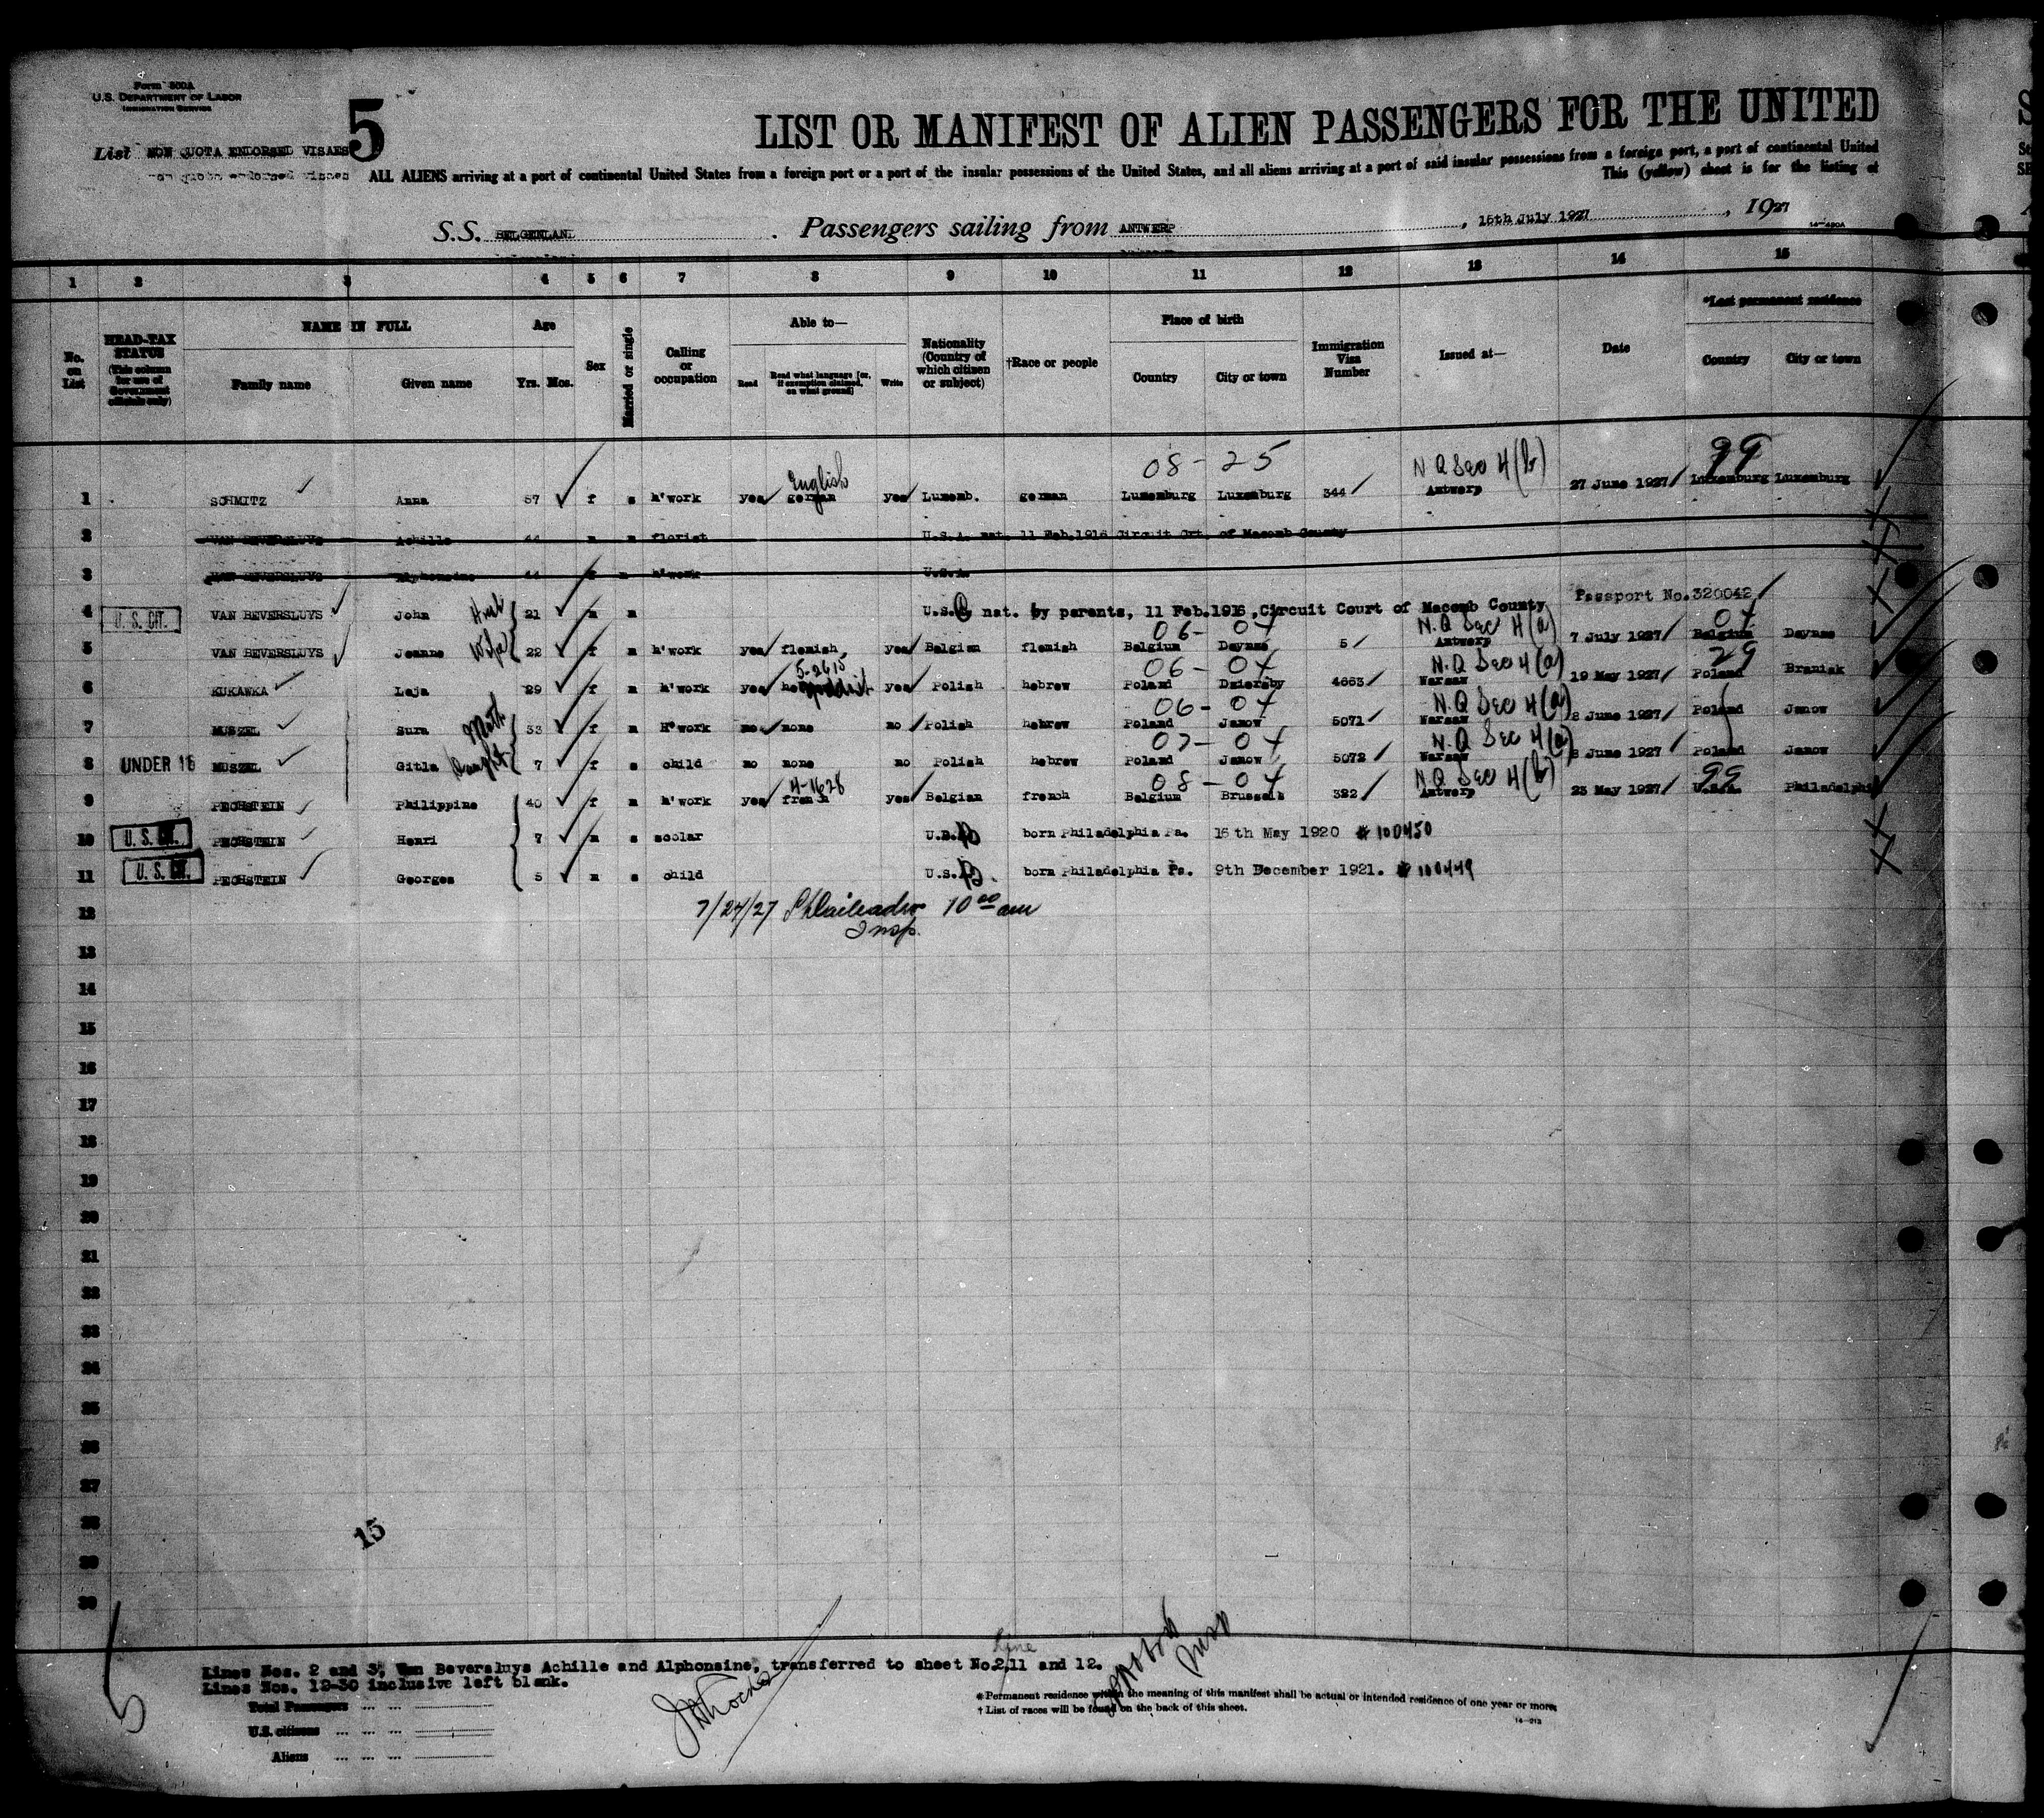 Form 500A
U.S. DEPARTMENT OF LABOR
IMMIGRATION SERVICE
5
LIST OR MANIFEST OF ALIEN PASSENGERS FOR THE UNITED
List NON QUOTA ENDORSED VISAES
non quota endorsed visaes
ALL ALIENS arriving at a port of continental United States from a foreign port or a port of the insular possessions of the United States, and all aliens arriving at a port of said insular possessions from a foreign port, a port of continental United
This (yellow) sheet is for the listing of
S.S. BELGENLAND . Passengers sailing from ANTWERP , 15th July 1927 , 1927
14-480A
1 2 3 4 5 6 7 8 9 10 11 12 13 14 15
No. on List
HEAD-TAX STATUS (This column for use of Government officials only)
NAME IN FULL
Family name Given name
Age
Yrs. Mos.
Sex
Married or single
Calling or occupation
Able to—
Read Read what language [or, if exemption claimed, on what ground] Write
Nationality (Country of which citizen or subject)
†Race or people
Place of birth
Country City or town
Immigration Visa Number
Issued at—
Date
*Last permanent residence
Country City or town
English 08 - 25 N Q Sec 4 (b) 99
1 SCHMITZ Anna 57 f s h'work yes german yes Luxemb. german Luxemburg Luxemburg 344 Antwerp 27 June 1927 Luxemburg Luxemburg
2 VAN BEVERSLUYS Achille 44 m m florist U.S.A. nat. 11 Feb.1916 Circuit Crt. of Macomb County
3 VAN BEVERSLUYS Alphonsine 44 f m h'work U.S.A.
4 U. S. CIT. VAN BEVERSLUYS John Husb 21 m m U.S.A. nat. by parents, 11 Feb.1916, Circuit Court of Macomb County Passport No.320042
06 - 04 N.Q Sec 4 (a) 04
5 VAN BEVERSLUYS Jeanne Wife 22 f m h'work yes flemish yes Belgian flemish Belgium Deynze 5 Antwerp 7 July 1927 Belgium Deynze
5-2615 06 - 04 N.Q Sec 4 (a) 29
6 KUKAWKA Laja 29 f m h'work yes yes Polish hebrew Poland Dziersby 4663 Warsaw 19 May 1927 Poland Braniak
06 - 04 N.Q Sec 4 (a)
7 MUSZEL Sura Moth 53 f m H'work no none no Polish hebrew Poland Janow 5071 Warsaw 8 June 1927 Poland Janow
07 - 04 N.Q Sec 4 (a)
8 UNDER 16 MUSZEL Gitla Daught 7 f s child no none no Polish hebrew Poland Janow 5072 Warsaw 8 June 1927 Poland Janow
4-1628 08 - 04 N.Q Sec 4 (b) 99
9 PECHSTEIN Philippine 40 f m h'work yes french yes Belgian french Belgium Brussels 322 Antwerp 23 May 1927 U.S.A. Philadelphia
10 U. S. CIT. PECHSTEIN Henri 7 m s scolar U.S. born Philadelphia Pa. 15th May 1920 # 100450
11 U. S. CIT. PECHSTEIN Georges 5 m s child U.S. born Philadelphia Pa. 9th December 1921. # 100449
12 7/24/27 10 00 am
Insp.
13
14
15
16
17
18
19
20
21
22
23
24
25
26
27
28
29
30
15
Line
Lines Nos. 2 and 3, Van Beversluys Achille and Alphonsine, transferred to sheet No.2,11 and 12.
Lines Nos. 12-30 inclusive left blank.
Total Passengers
U.S. citizens
Aliens
*Permanent residence within the meaning of this manifest shall be actual or intended residence of one year or more.
† List of races will be found on the back of this sheet.
14-212